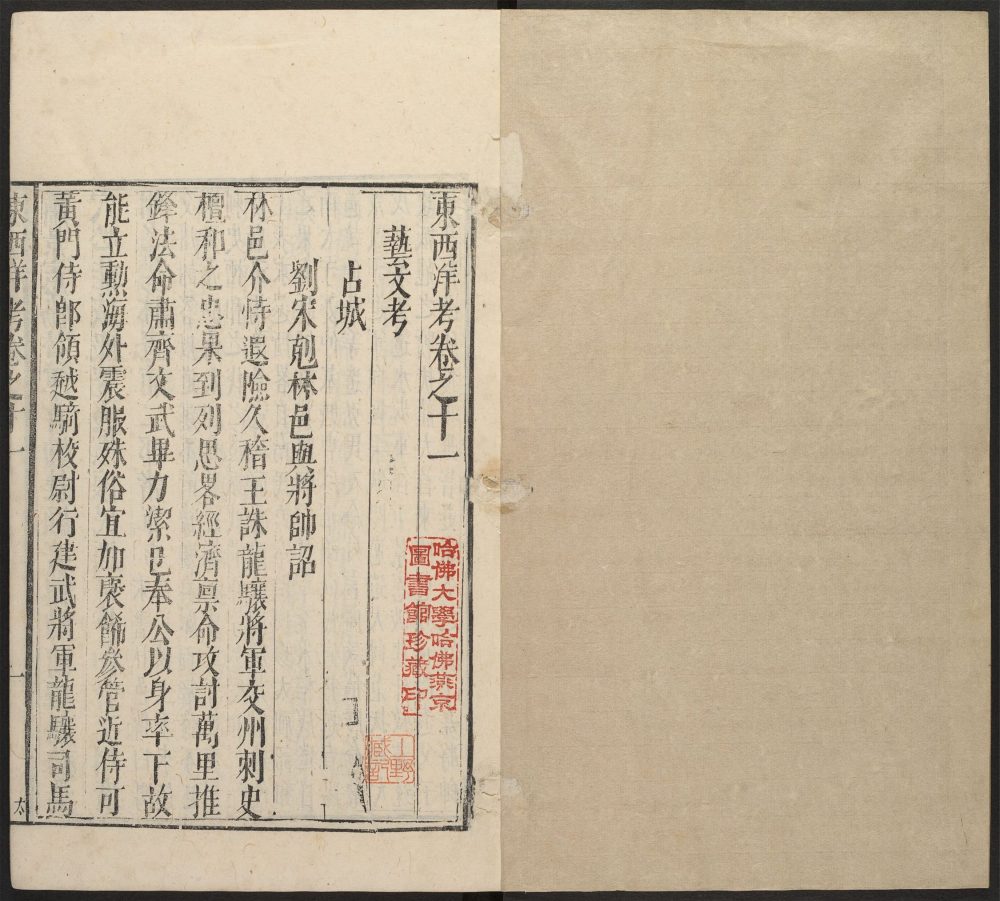 東西洋考卷之十一
藝文考
占城
劉宋剋林邑與將帥詔
林邑介恃遐險久稽王誅龍驤將軍交州刺史
檀和之忠果到列思畧經濟禀命攻討萬里推
鋒法命肅齊文武畢力潔已奉公以身率下故
能立勲海外震服殊俗宜加褒餙參管近侍可
黃門侍郎領越騎校尉行建武將軍龍驤司馬
東西洋考卷之十一
一
太
哈佛大學哈佛燕京
圖書館珍藏印